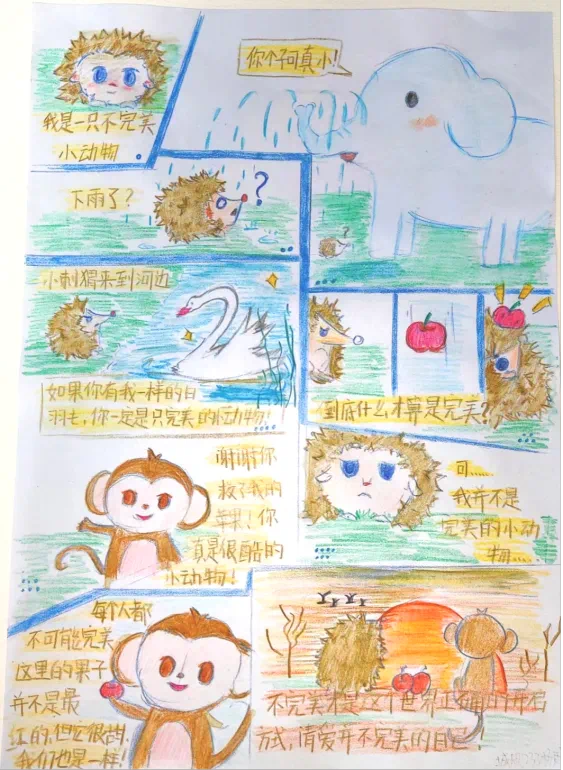 我是一只不完美
小动物。
下雨了?
?
你个子可真小!
?
小刺猬来到河边
如果你有我一样的白
羽毛,你一定是只完美的小动物!
到底什么才算是完美?
可……
我并不是
完美的小动
物……
谢谢你
救了我的
苹果!你
真是很酷的
小动物!
每个人都
不可能完美
这里的果子
并不是最
红的,但它很甜,
我们也是一样!
不完美才是这个世界正确的开启
方式,请爱并不完美的自己!